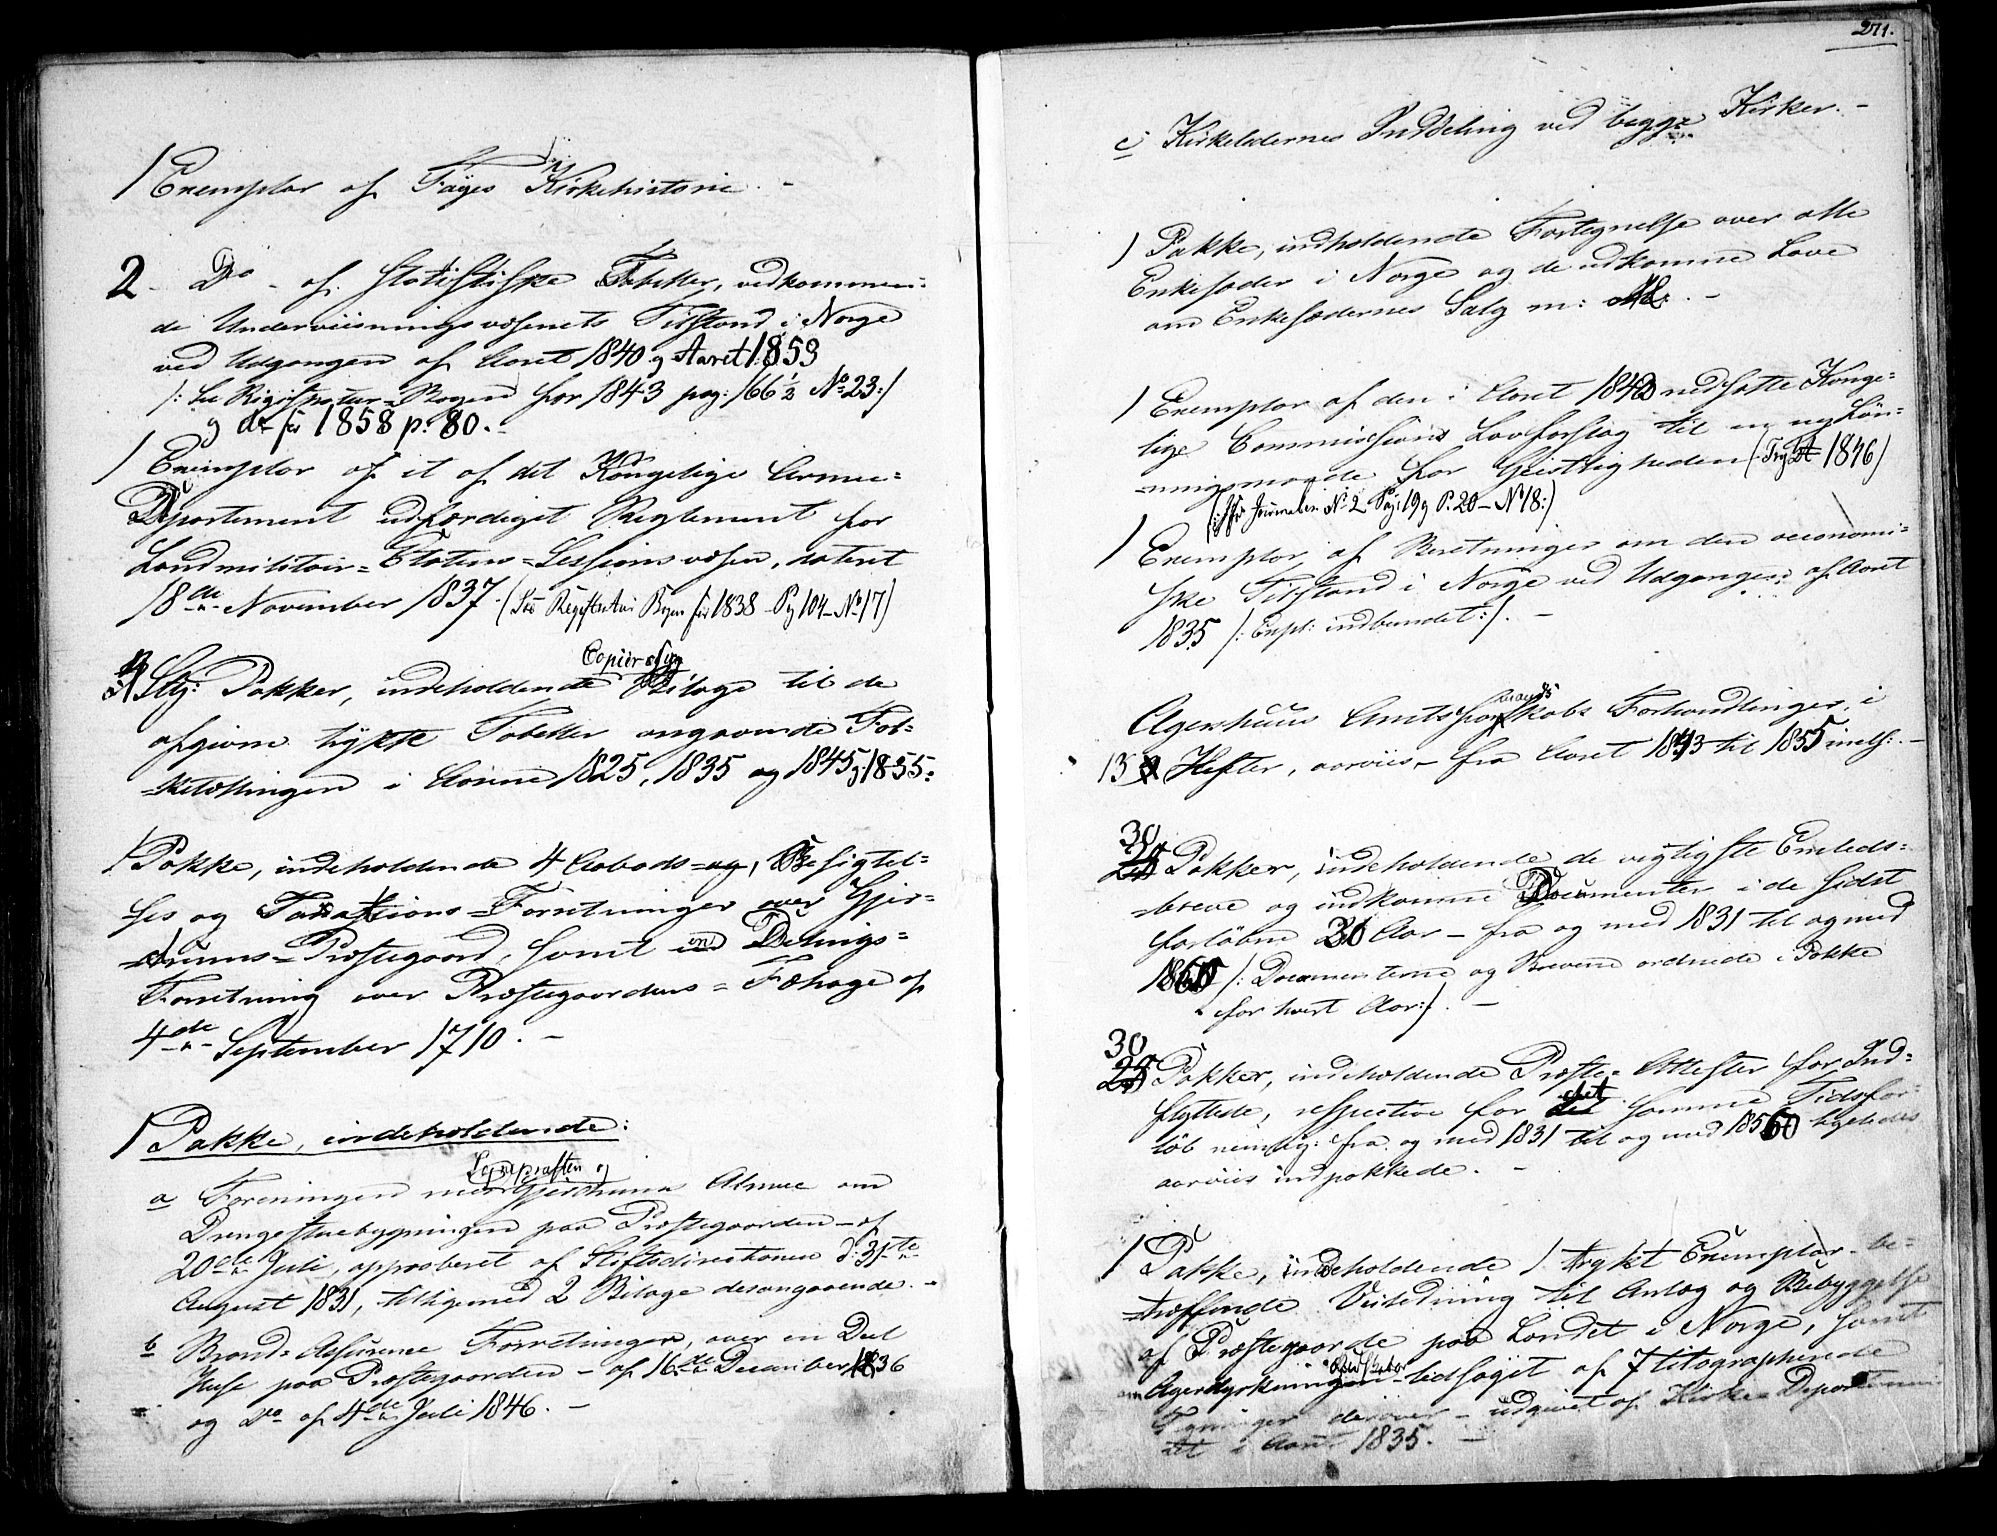 1 Exemplar af Fayes Kirkehistorie. -
2 - Do - af statistiske Tabeller, vedkommen-
de Underviisningsvæsenets Tilstand i Norge
ved Udgangen af Aaret 1840 og Aaret 1853
/: See Registratur-Bogen for 1843 pag: 166½ No 23:/
og do for 1858 p. 80.
1 Exemplar af et af det Kongelige Armee-
Departement udfærdiget Reglement for
Landmilitair-Etatens-Sessionsvæsen, dateret
18de November 1837. (See Registratur Bogen for 1838 Pg 104 - No 17)
Copier af og
4 Stk: Pakker, indeholdende Bilage til de
afgivne trykte Tabeller angaaende Fol-
ketællingen i Aarene 1825, 1835 og 1845 og 1855.
1 Pakke, indeholdende 4 Aabods- og Besigtel-
ses og Taxations-Forretninger over Gjer-
drums-Præstegaard, samt en Delings-
Forretning over Præstegaardens-Fæhage af
4de September 1710. -
1 Pakke, indeholdende:
og
a Foreningen med Gjerdrums Almue om
Drengestuebygningen paa Præstegaarden - af
20de Juli, approberet af Stiftsdirektionen d: 31te
August 1831, tilligemed 2 Bilage desangaaende. -
b Brand-Assurance Forretningen, over en Deel
Huse paa Præstegaarden - af 16de December 1836
og Do af 4de Juli 1846. -
271.
c Kirkeladernes Inddeling ved begge Kirker. -
1 Pakke, indholdende Fortegnelse over alle
Enkesæder i Norge og de udkomne Love
om Enkesædernes Salg m:
1 Exemplar af den i Aaret 1842 nedsatte Konge-
lige Commissions Lovforslag til en ny Løn-
ningsmaade for Geistligheden (Trykt 1846)
Journalen No 2 Pag: 19 og P. 20 - No 18:)
1 Exemplar af Beretninger om den oeconomi-
ske Tilstand i Norge ved Udgangen af Aaret
1835 /: Expl: indbundet:/. -
Agershuus Amtsformandskabs Forhandlinger, i
13 Hefter, aarviis - fra Aaret 1843 til 1855 incls: -
30
Pakker, indeholdende de vigtigste Embeds-
breve og indkomne Documenter i de sidst
forløbne 30 Aar - fra og med 1831 til og med
1860 /: Documenterne og Brevene ordnede i Pakke
for hvert Aar:/. -
30
Pakker, indeholdende Præste-Attester for Ind-
flyttede, respective for det samme Tidsfor-
løb nemlig: fra og med 1831 til og med 1860 ligeledes
aarviis indpakkede. -
1 Pakke, indeholdende 1 trykt Exemplar be-
træffende Veiledning til Anlæg og Bebyggelse
af Præstegaarde paa Landet i Norge, samt
om Agerdyrkningen - ledsaget af 7 litographerede
Tegninger derover - udgivet af Kirke-Departemen-
tet i Aaret 1835. -